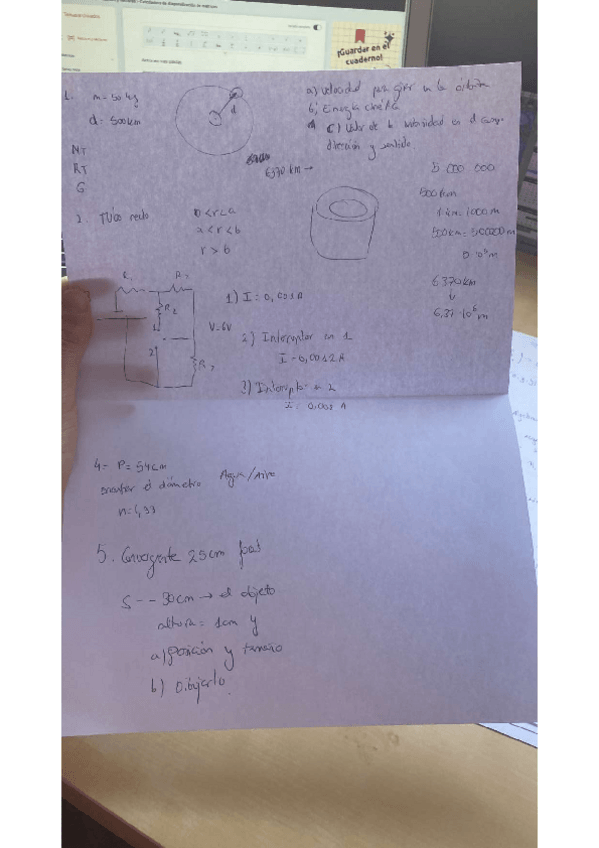 ¡Guardar en el
cuaderno!
1. m = 50 kg
d = 500 km
MT
RT
G
d
a) velocidad para girir en la órbita
b) Energía cinética
c) Valor de la intensidad en el campo
dirección y sentido
6370 km →
5 000 000
500 km
1 km = 1000 m
6370 km
↓
6,37·10⁶ m
2. Tubo recto
0 < r < a
a < r < b
r > b
R₂
2
V = 6V
1) I = 0,001 A
2) Interruptor en 1
I = 0,0012 A
3) Interruptor en 2
I = 0,002 A
4- P = 54 cm
encontrar el diámetro Agua/Aire
n = 1,33
5. Convergente 25cm focal
S -- 30cm → el objeto
altura = 1cm y
a) posición y tamaño
b) Dibujarlo.